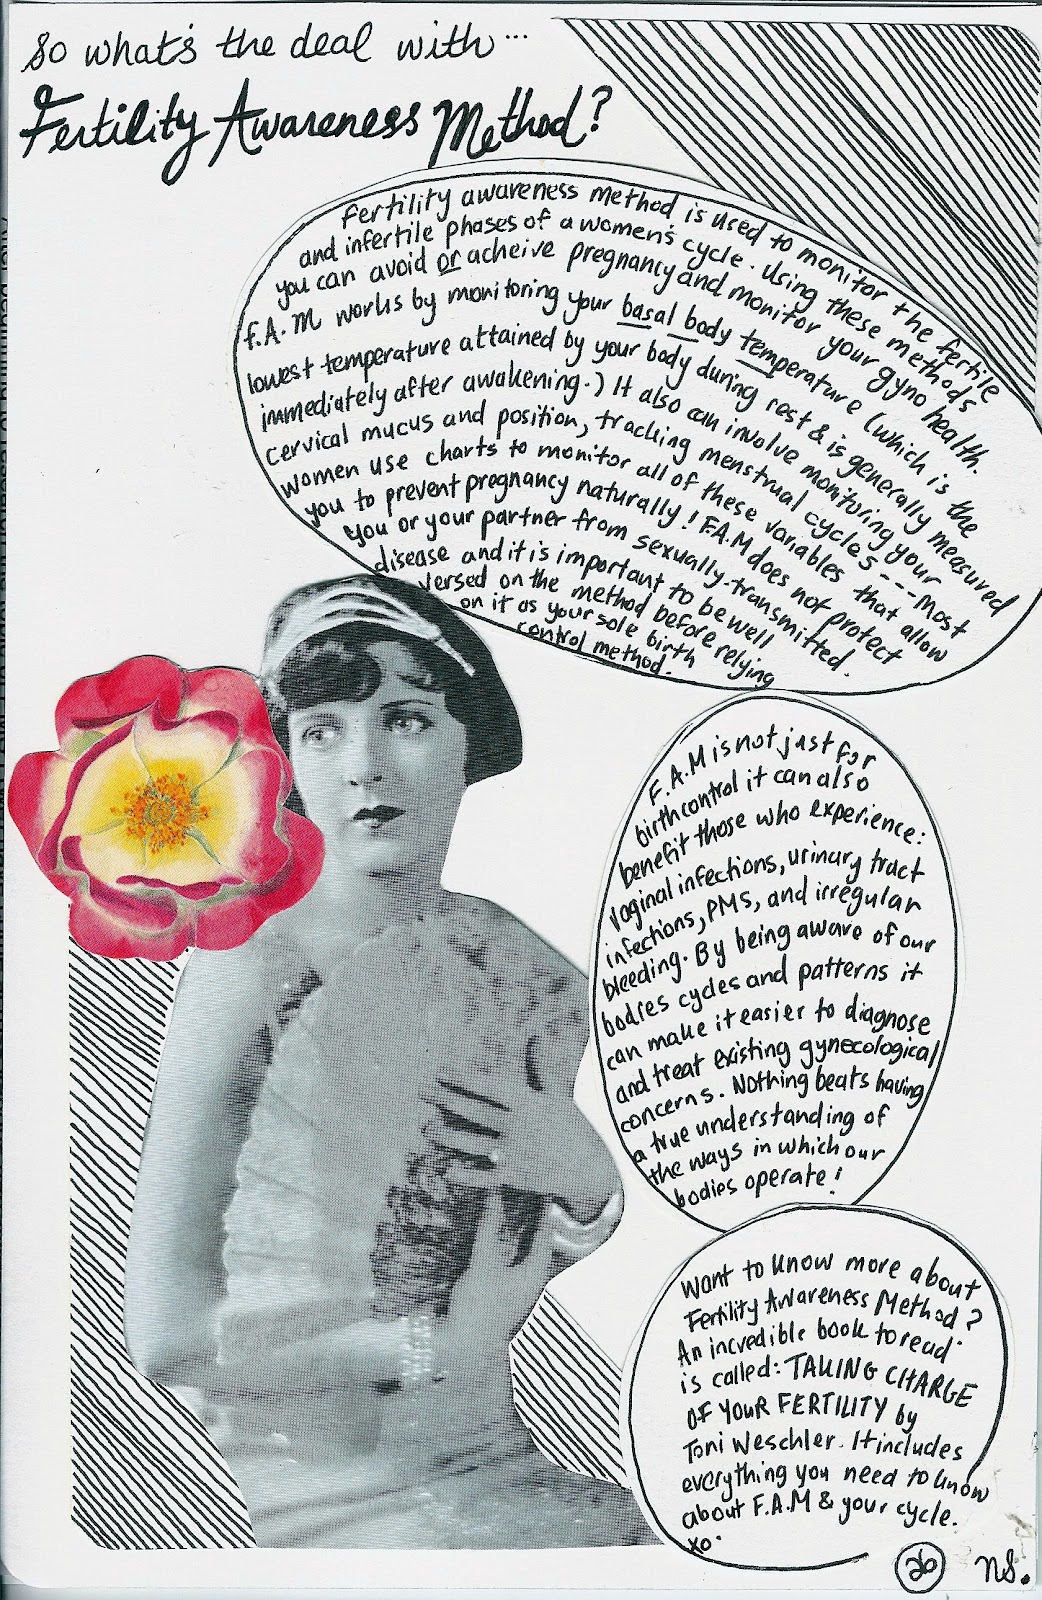 So what's the deal with...
Fertility Awareness Method?
Fertility awareness method is used to monitor the fertile
and infertile phases of a women's cycle. Using these methods
you can avoid or acheive pregnancy and monitor your gyno health.
F.A.M works by monitoring your basal body temperature (which is the
lowest temperature attained by your body during rest & is generally measured
immediately after awakening.) It also can involve monitoring your
cervical mucus and position, tracking menstrual cycles --- Most
women use charts to monitor all of these variables that allow
you to prevent pregnancy naturally! F.A.M does not protect
you or your partner from sexually-transmitted.
disease and it is important to be well
versed on the method before relying
on it as your sole birth
control method.
F.A.M is not just for
birthcontrol it can also
benefit those who experience:
vaginal infections, urinary tract
infections, PMS, and irregular
bleeding. By being aware of our
bodies cycles and patterns it
can make it easier to diagnose
and treat existing gynecological
concerns. Nothing beats having
a true understanding of
the ways in which our
bodies operate!
Want to know more about
Fertility Awareness Method?
An incredible book to read
is called: TAKING CHARGE
OF YOUR FERTILITY by
Toni Weschler. It includes
everything you need to know
about F.A.M & your cycle.
xo.
26 NS.